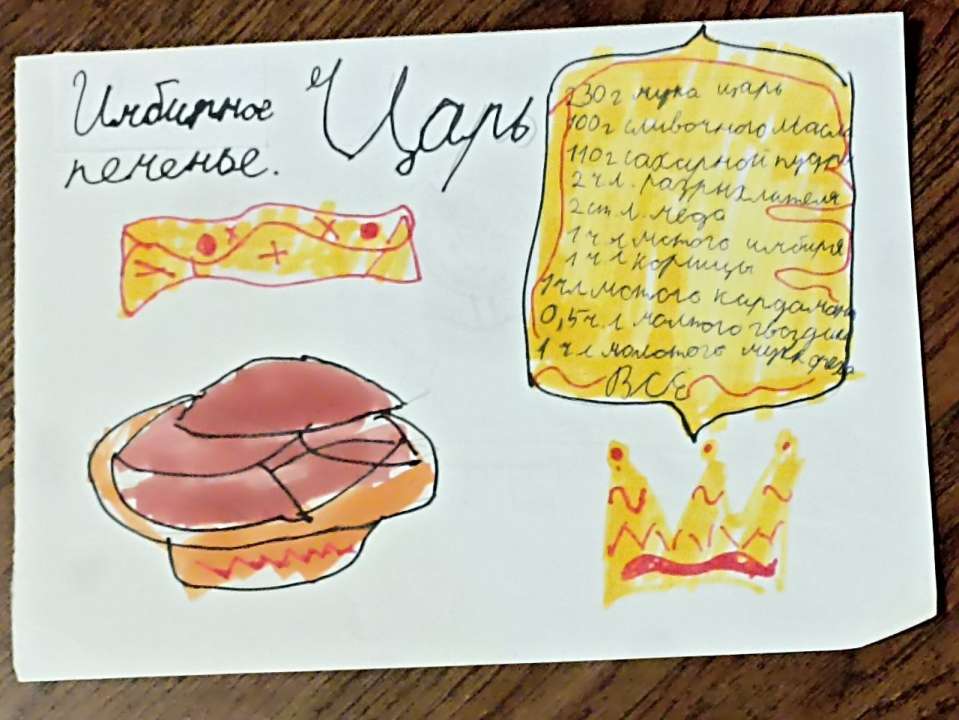 Имбирное
печенье.
"Царь
230г мука царь
100г сливочного масла
110г сахарной пудры
2 ч л. разрыхлителя
2 ст л. меда
1 ч л мотого имбиря
1 ч л корицы
1 ч л мотого кардамона
0,5 ч л молотого гвоздики
1 ч л молотого мукк ореха
ВСЕ